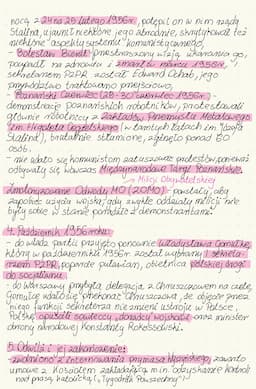 nocą z 24 na 25 lutego 1956r., potępił on w nim rządy
Stalina, ujawnił niektóre jego zbrodnie, skrytykował też
niektóre "aspekty systemu" komunistycznego.
- Bolesław Bierut
popadł na zdrowiu i zmarł w marcu 1956r.,
sekretarzem PZPR został Edward Ochab, jego
przywództwo traktowano przejściowo,
- Poznański Czerwiec (28-30 czerwca 1956r.) -
demonstracje poznańskich robotników, protestowali
głównie robotnicy z Zakładów Przemysłu Metalowego
im. Hipolita Cegielskiego (w tamtych latach im. Józefa
Stalina), brutalnie stłumione, zginęło ponad 50
osób.
- nie udało się komunistom zatuszować protestów, ponieważ
odbywały się wówczas Międzynarodowe Targi Poznańskie,
Milicji Obywatelskiej
- Zmotoryzowane Odwody MO (ZOMO) - powstały, aby
zapobiec użyciu wojska, gdy zwykłe oddziały milicji nie
były sobie w stanie poradzić z demonstrantami
4. Październik 1956 roku:
- do władz partii przyjęto ponownie Władysława Gomułkę,
który w październiku 1956r. został wybrany I sekreta-
rzem PZPR, poparcie puławian, obietnica polskiej drogi
do socjalizmu.
- do Warszawy przybyła delegacja z Chruszczowem na czele,
Gomułce udało się przekonać Chruszczowa, że objęcie przez
niego funkcji sekretarza nie zmieni ustroju w Polsce,
Polskę opuścili sowieccy doradcy wojskowi oraz minister
obrony narodowej Konstanty Rokossowski.
5. Odwilż i jej zakończenie:
- zwolniono z internowania prymasa Wyszyńskiego, zawarto
umowę z Kościołem zakładającą m.in. odzyskanie kontroli
nad prasą katolicką ("Tygodnik Powszechny")